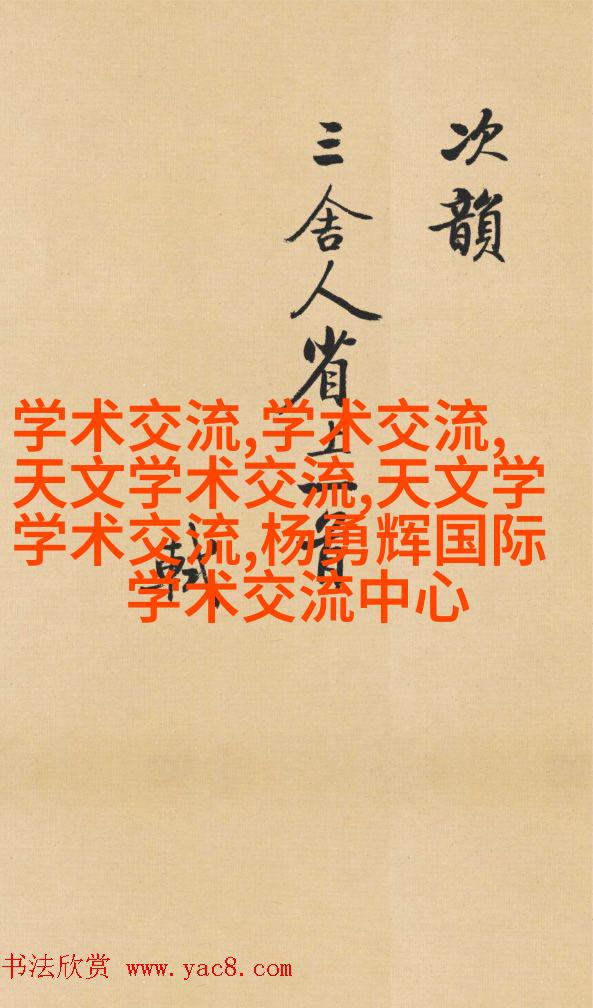 次韻
三舍人省上一首
軾
学术交流,学术交流,
天文学术交流,天文学
学术交流,杨勇辉国际
学术交流中心
书法欣赏 www.yac8.com